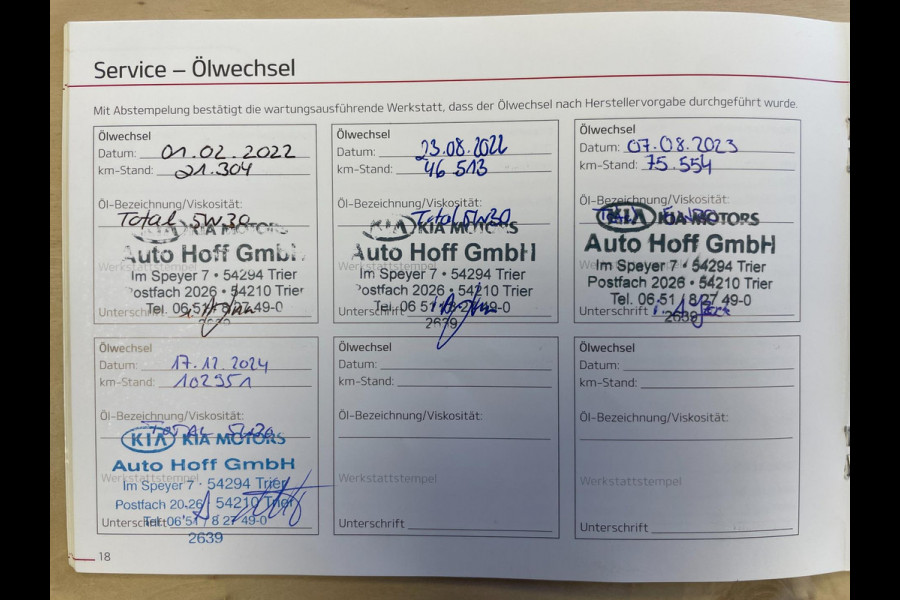 Service – Ölwechsel
Mit Abstempelung bestätigt die wartungsausführende Werkstatt, dass der Ölwechsel nach Herstellervorgabe durchgeführt wurde.
Ölwechsel
Datum: 01.02.2022
km-Stand: 21.304
Öl-Bezeichnung/Viskosität:
Total 5W30
KIA KIA MOTORS
Auto Hoff GmbH
Werkstattstempel
Im Speyer 7 • 54294 Trier
Postfach 2026 • 54210 Trier
Tel. 06 51 / 8 27 49-0
Unterschrift
2639
Ölwechsel
Datum: 23.08.2022
km-Stand: 46 513
Öl-Bezeichnung/Viskosität:
Total 5W30
KIA KIA MOTORS
Auto Hoff GmbH
Werkstattstempel
Im Speyer 7 • 54294 Trier
Postfach 2026 • 54210 Trier
Tel. 06 51 / 8 27 49-0
Unterschrift
2639
Ölwechsel
Datum: 07.08.2023
km-Stand: 75.554
Öl-Bezeichnung/Viskosität:
KIA KIA MOTORS
Auto Hoff GmbH
Werkstattstempel
Im Speyer 7 • 54294 Trier
Postfach 2026 • 54210 Trier
Tel. 06 51 / 8 27 49-0
Unterschrift
2639
Ölwechsel
Datum: 17.12.2024
km-Stand: 102951
Öl-Bezeichnung/Viskosität:
Total 5W30
KIA KIA MOTORS
Auto Hoff GmbH
Werkstattstempel
Im Speyer 7 · 54294 Trier
Postfach 20 26 · 54210 Trier
Tel. 06 51 / 8 27 49-0
Unterschrift
2639
Ölwechsel
Datum:
km-Stand:
Öl-Bezeichnung/Viskosität:
Werkstattstempel
Unterschrift
Ölwechsel
Datum:
km-Stand:
Öl-Bezeichnung/Viskosität:
Werkstattstempel
Unterschrift
18